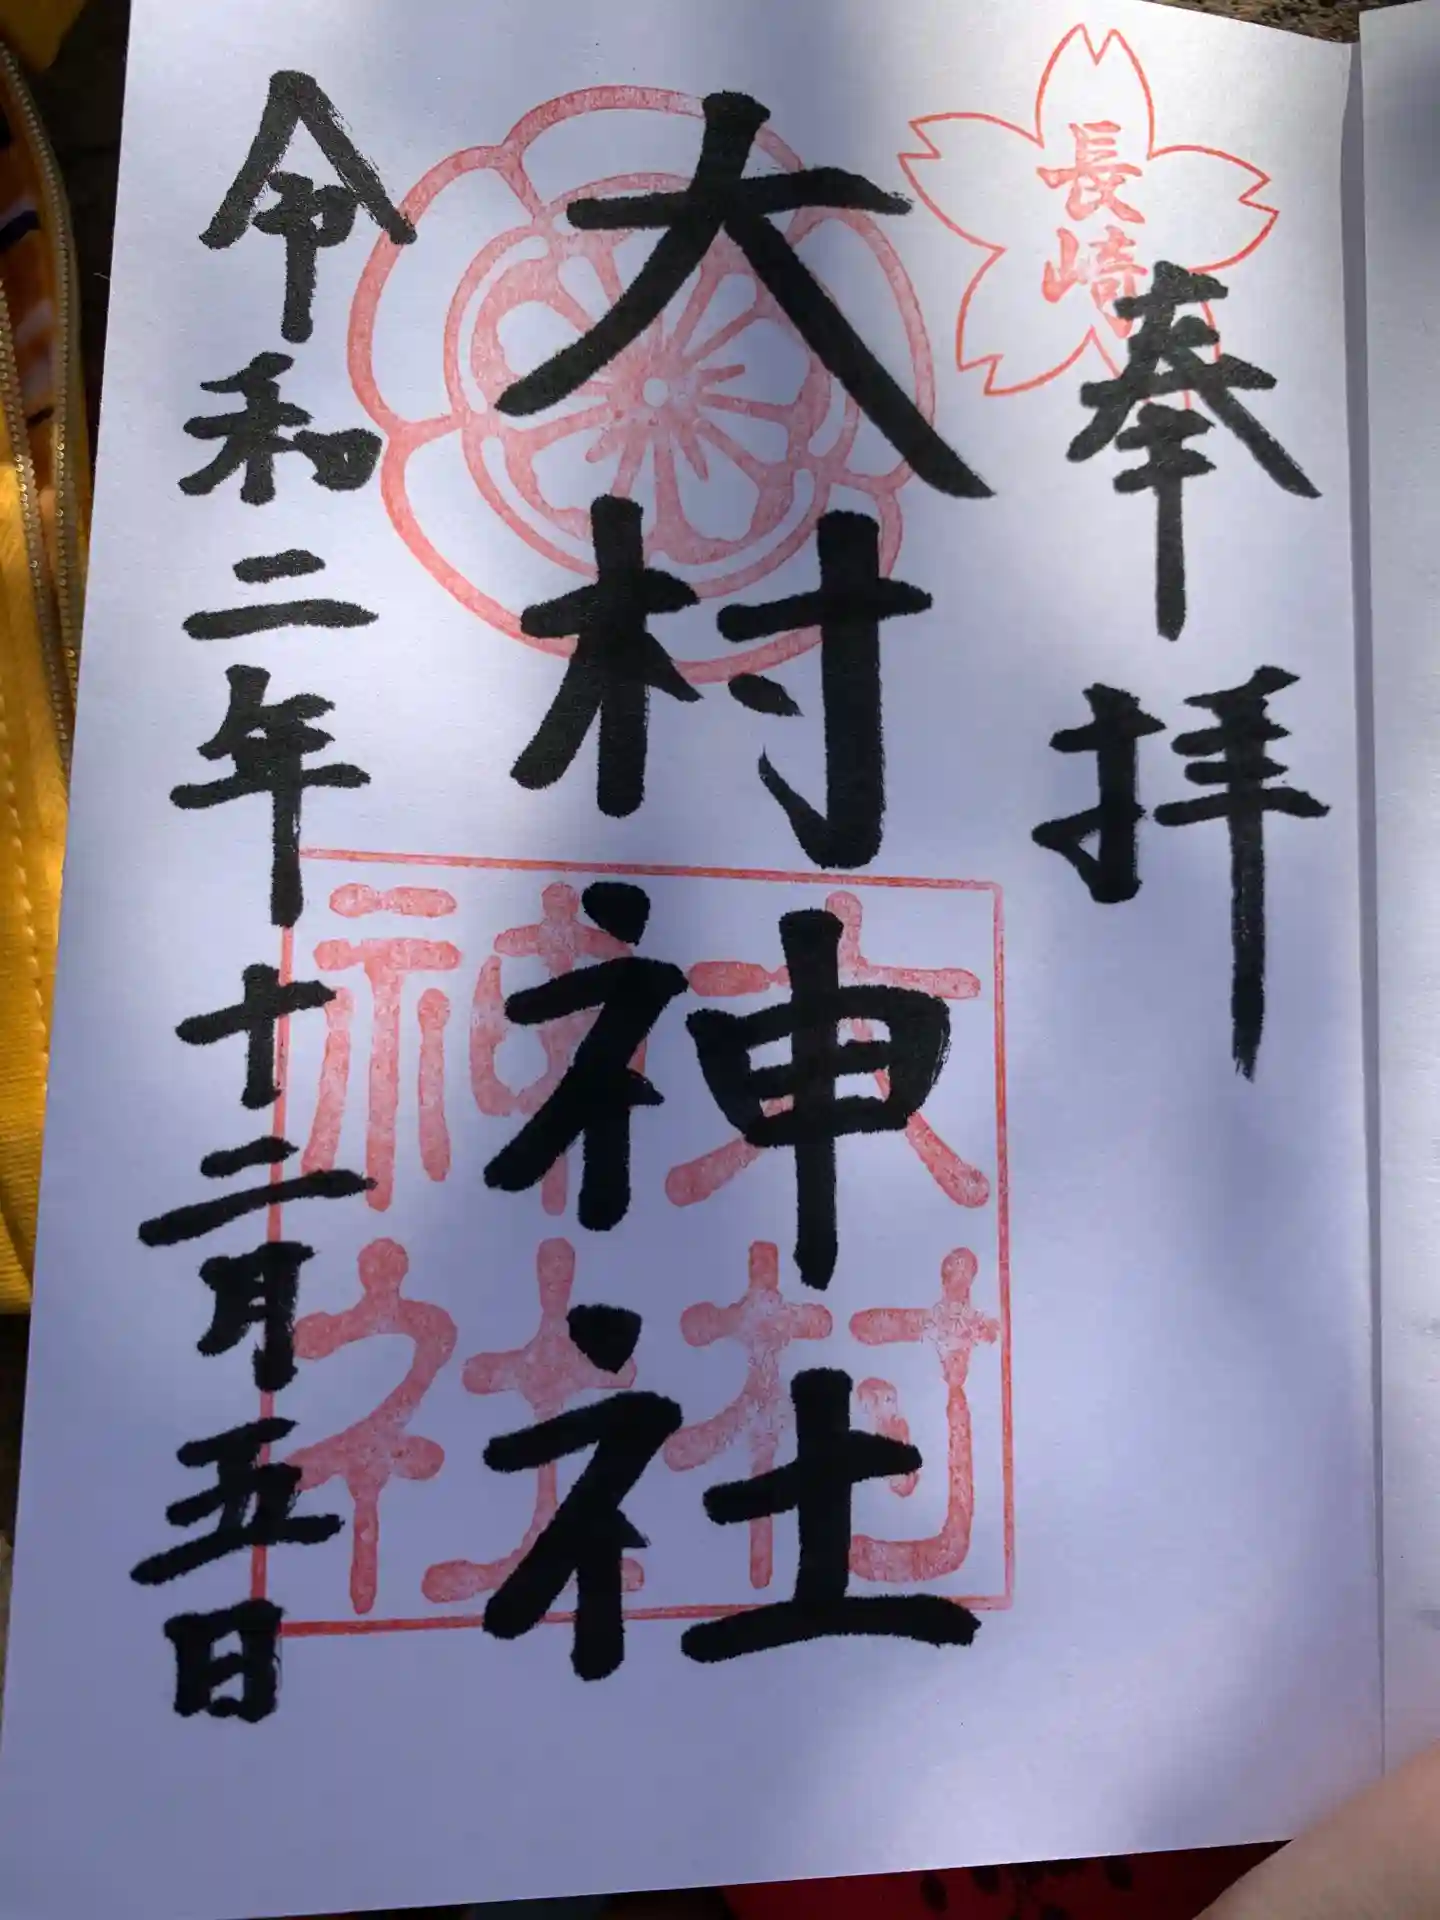 長崎
奉拝
大村神社
大村神社
令和二年十二月五日